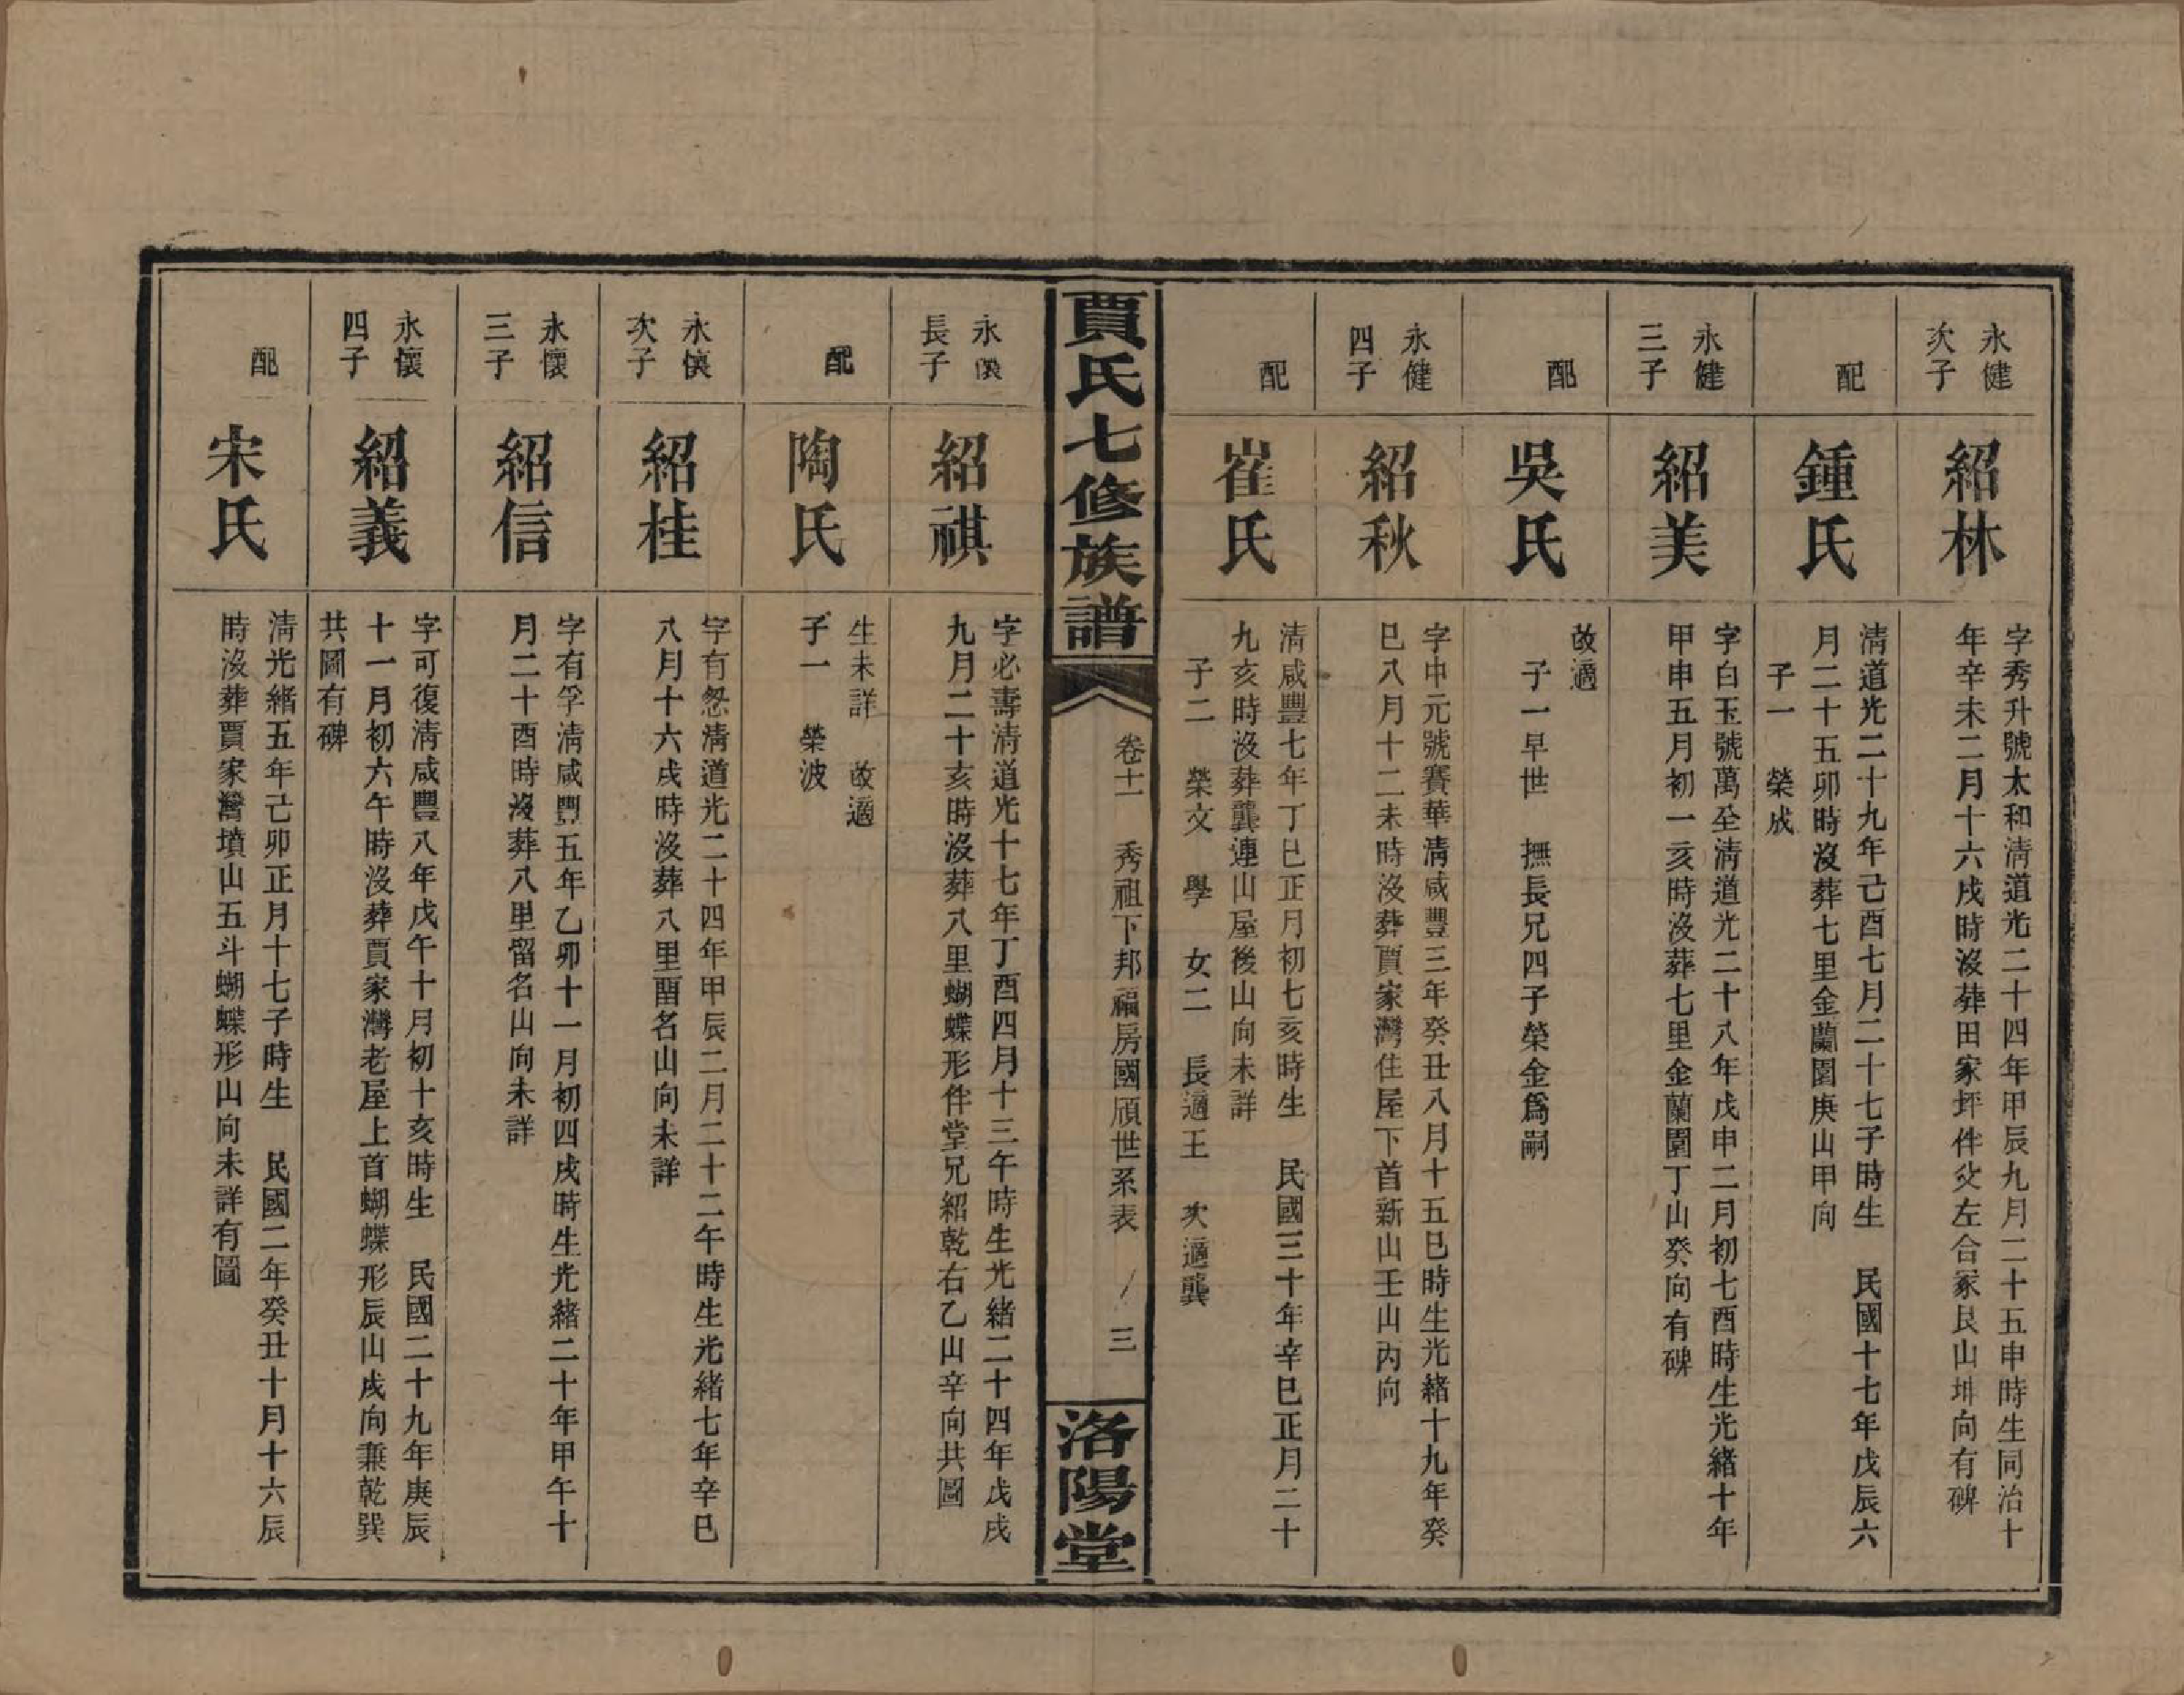 永健
次子
紹林
字秀升號太和淸道光二十四年甲辰九月二十五申時生同治十
年辛未二月十六戌時沒葬田家坪伴父左合冢艮山坤向有碑
配
鍾氏
淸道光二十九年己酉七月二十七子時生 民國十七年戊辰六
月二十五卯時沒葬七里金蘭園庚山甲向
子一 榮成
永健
三子
紹美
字白玉號萬全淸道光二十八年戊申二月初七酉時生光緖十年
甲申五月初一亥時沒葬七里金蘭園丁山癸向有碑
配
吳氏
改適
子一早世 撫長兄四子榮金爲嗣
永健
四子
紹秋
字中元號賽華淸咸豐三年癸丑八月十五巳時生光緖十九年癸
巳八月十二未時沒葬賈家灣住屋下首新山壬山丙向
配
崔氏
淸咸豐七年丁巳正月初七亥時生 民國三十年辛巳正月二十
九亥時沒葬龔連山屋後山向未詳
子二 榮文 學 女二 長適王 次適龔
賈氏七修族譜
卷十一 秀祖下邦福房國頎世系表 三
洛陽堂
永懷
長子
紹祺
字必壽淸道光十七年丁酉四月十三午時生光緖二十四年戊戌
九月二十亥時沒葬八里蝴蝶形伴堂兄紹乾右乙山辛向共圖
配
陶氏
生未詳 改適
子一 榮波
永懷
次子
紹桂
字有恕淸道光二十四年甲辰二月二十二午時生光緖七年辛巳
八月十六戌時沒葬八里畱名山向未詳
永懷
三子
紹信
字有孚淸咸豐五年乙卯十一月初四戌時生光緖二十年甲午十
月二十酉時沒葬八里留名山向未詳
永懷
四子
紹義
字可復淸咸豐八年戊午十月初十亥時生 民國二十九年庚辰
十一月初六午時沒葬賈家灣老屋上首蝴蝶形辰山戌向兼乾巽
共圖有碑
配
宋氏
淸光緖五年己卯正月十七子時生 民國二年癸丑十月十六辰
時沒葬賈家灣墳山五斗蝴蝶形山向未詳有圖